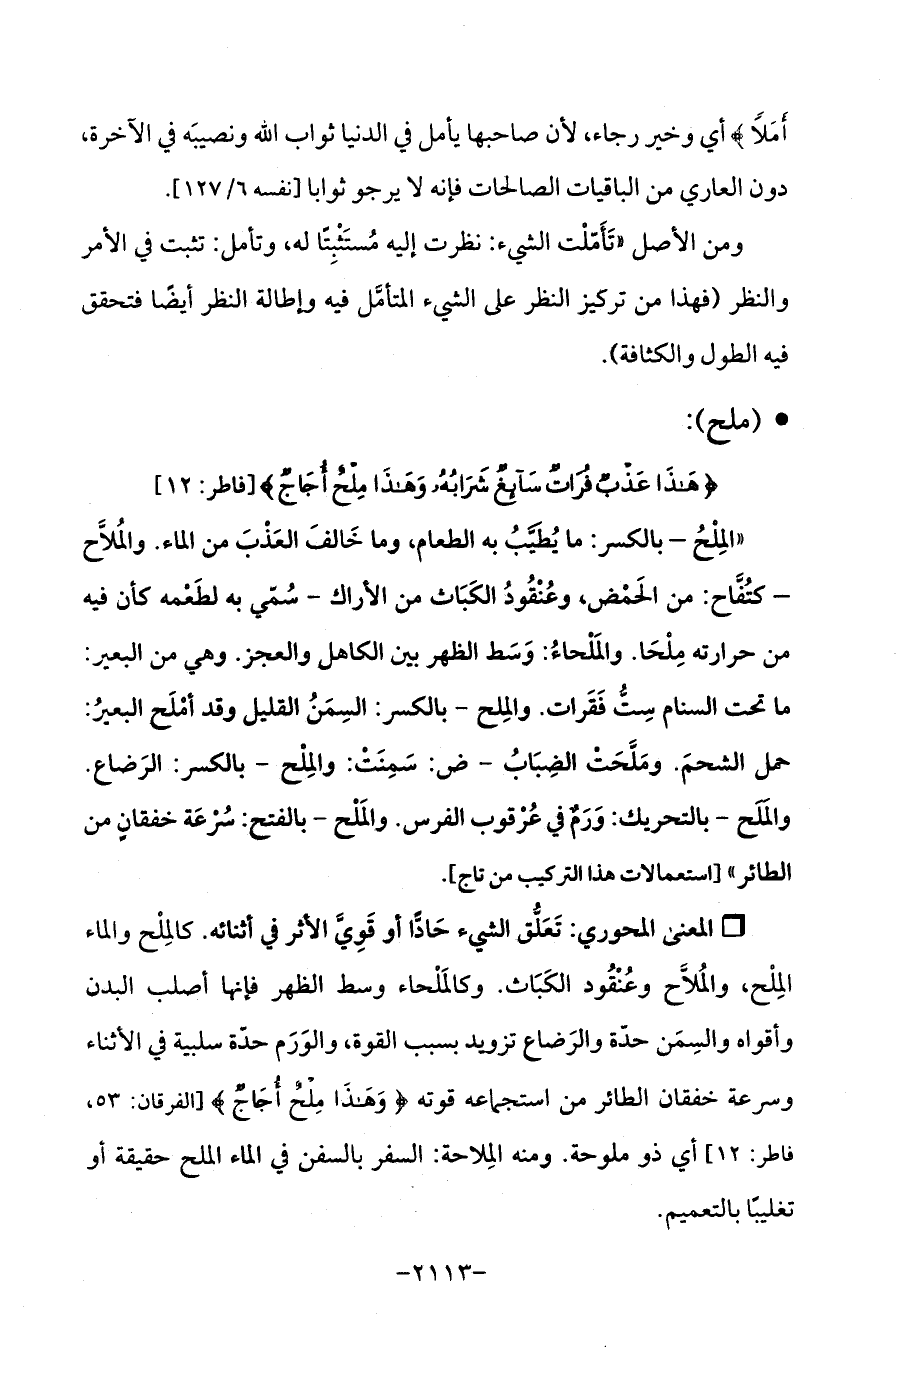 أَمَلًا ﴾ أي وخير رجاء، لأن صاحبها يأمل في الدنيا ثواب الله ونصيبَه في الآخرة،
دون العاري من الباقيات الصالحات فإنه لا يرجو ثوابا [نفسه ٦/ ١٢٧].
ومن الأصل «تَأَمَّلْت الشيء: نظرت إليه مُستَثْبِتًا له، وتأمل: تثبت في الأمر
والنظر (فهذا من تركيز النظر على الشيء المتأمَّل فيه وإطالة النظر أيضًا فتحقق
فيه الطول والكثافة).
• (ملح):
﴿ هَـٰذَا عَذْبٌ فُرَاتٌ سَآئِغٌ شَرَابُهُۥ وَهَـٰذَا مِلْحٌ أُجَاجٌ ﴾ [فاطر: ١٢]
«المِلْحُ – بالكسر: ما يُطَيَّبُ به الطعام، وما خَالفَ العَذْبَ من الماء. والمُلاَّح
– كتُفَّاح: من الحَمْض، وعُنْقُودُ الكَبَاث من الأراك – سُمّي به لطَعْمه كأن فيه
من حرارته مِلْحَا. والمَلْحاءُ: وَسَط الظهر بين الكاهل والعجز. وهي من البعير:
ما تحت السنام سِتُّ فَقَرات. والمِلح – بالكسر: السِمَنُ القليل وقد أمْلَح البعيرُ:
حمل الشحمَ. ومَلَّحَتْ الضِبَابُ – ض: سَمِنَتْ: والمِلْح – بالكسر: الرَضاع.
والمَلَح – بالتحريك: وَرَمٌ في عُرْقوب الفرس. والمَلْح – بالفتح: سُرْعَة خفقانٍ من
الطائر» [استعمالات هذا التركيب من تاج].
□ المعنى المحوري: تَعَلُّق الشيء حَادًّا أو قَوِيَّ الأثر في أثنائه. كالمِلْح والماء
المِلْح، والمُلاَّح وعُنْقُود الكَبَاث. وكالمَلْحاء وسط الظهر فإنها أصلب البدن
وأقواه والسِمَن حدّة والرَضاع تزويد بسبب القوة، والوَرَم حدّة سلبية في الأثناء
وسرعة خفقان الطائر من استجماعه قوته ﴿ وَهَـٰذَا مِلْحٌ أُجَاجٌ ﴾ [الفرقان: ٥٣،
فاطر: ١٢] أي ذو ملوحة. ومنه المِلاحة: السفر بالسفن في الماء الملح حقيقة أو
تغليبًا بالتعميم.
-٢١١٣-